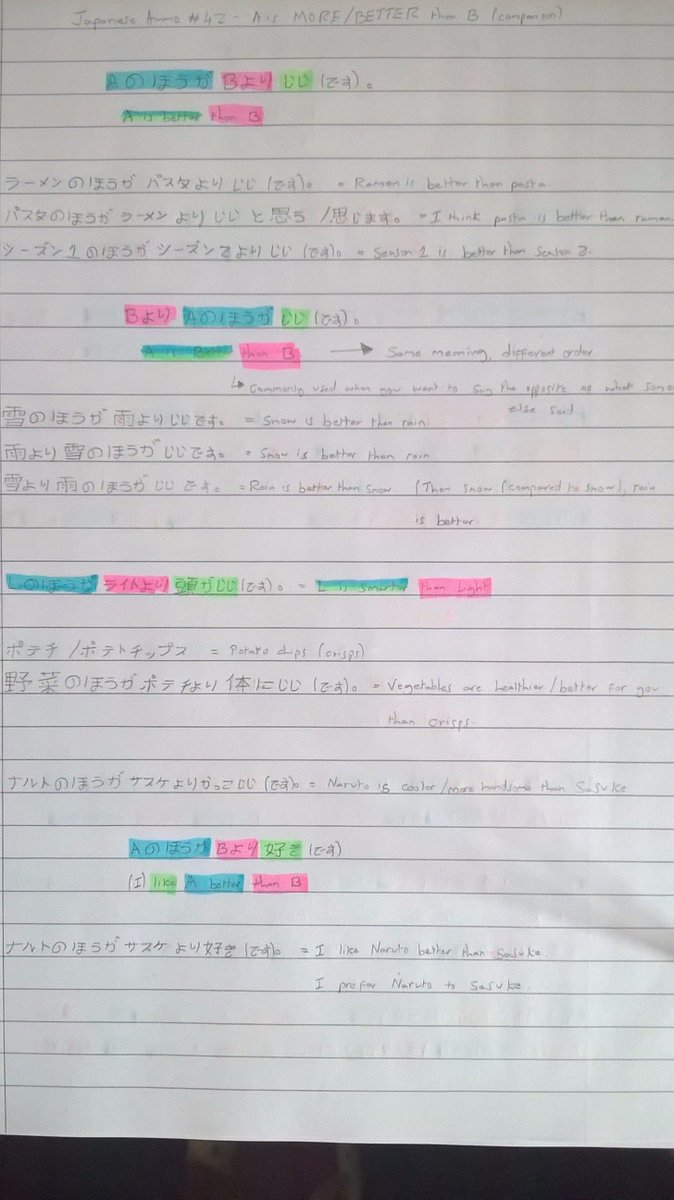 Japanese Ammo #42 - A is MORE/BETTER than B (comparison)
Aのほうが Bより じじ (です)。
A is better than B
ラーメンのほうが パスタより じじ (です)。 = Ramen is better than pasta
パスタのほうが ラーメン より じじ と思う /思じます。 = I think pasta is better than ramen
シーズン1のほうが シーズン2より じじ (です)。 = Season 1 is better than season 2.
Bより Aのほうが じじ (です)。
A is Better than B → Same meaning, different order
↳ Commonly used when you want to say the opposite of what some
else said
雪のほうが 雨より じじです。 = Snow is better than rain
雨より 雪のほうが じじです。 = Snow is better than rain
雪より 雨のほうが じじです。 = Rain is better than snow (Than snow (compared to snow), rain
is better
Lのほうが ライトより 頭がじじ (です)。 = L is smarter than Light
ポテチ /ポテトチップス = Potato chips (crisps)
野菜のほうがポテチより 体にじじ (です)。 = Vegetables are healthier/better for you
than crisps.
ナルトのほうが サスケよりかっこじじ (です)。 = Naruto is cooler/more handsome than Sasuke
Aのほうが Bより 好き (です)
(I) like A better than B
ナルトのほうが サスケ より好き (です)。 = I like Naruto better than Sasuke.
I prefer Naruto to Sasuke